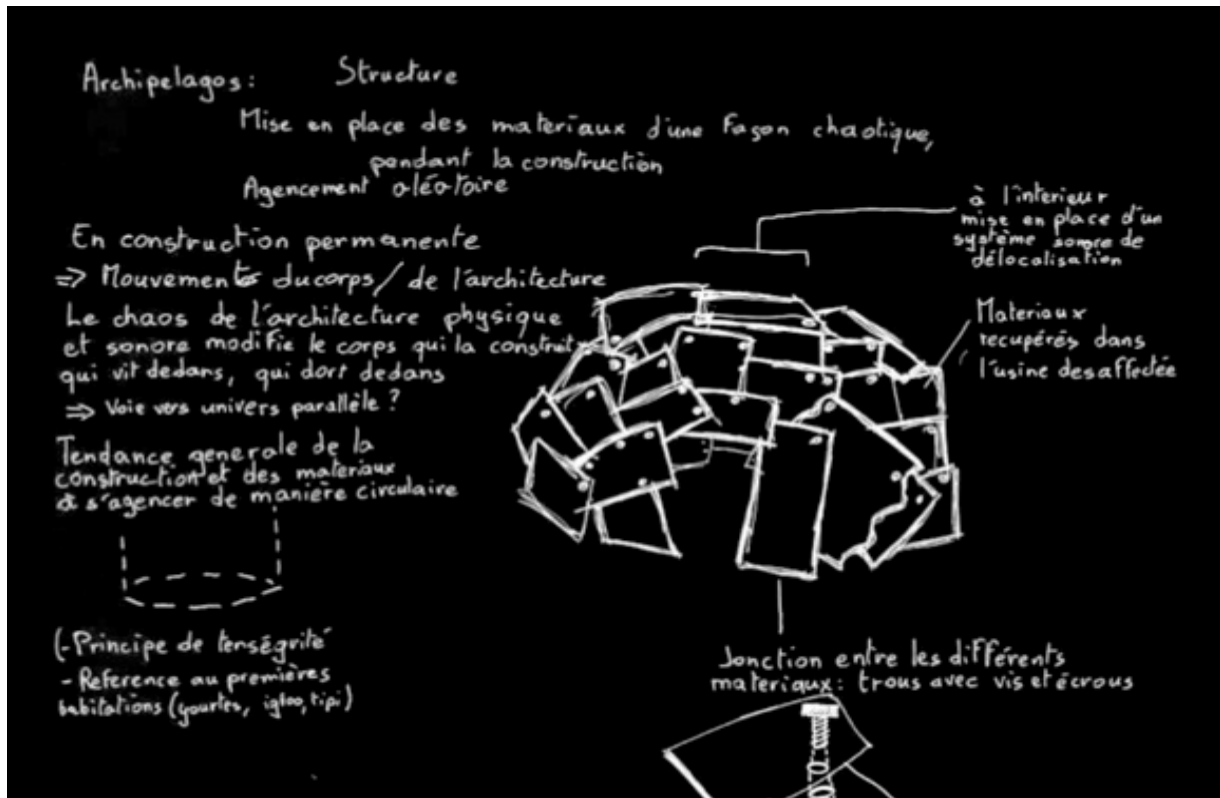 Archipelagos : Structure
Mise en place des materiaux d'une façon chaotique,
pendant la construction
Agencement aléatoire
En construction permanente
=> Mouvements du corps / de l'architecture
Le chaos de l'architecture physique
et sonore modifie le corps qui la construit
qui vit dedans, qui dort dedans
=> Voie vers univers parallèle ?
Tendance generale de la
construction et des materiaux
à s'agencer de manière circulaire
(- Principe de tenségrité
- Reference au premières
habitations (yourtes, igloo, tipi)
à l'interieur
mise en place d'un
système sonore de
délocalisation
Materiaux
recupérés dans
l'usine desaffectée
Jonction entre les différents
materiaux : trous avec vis et écrous